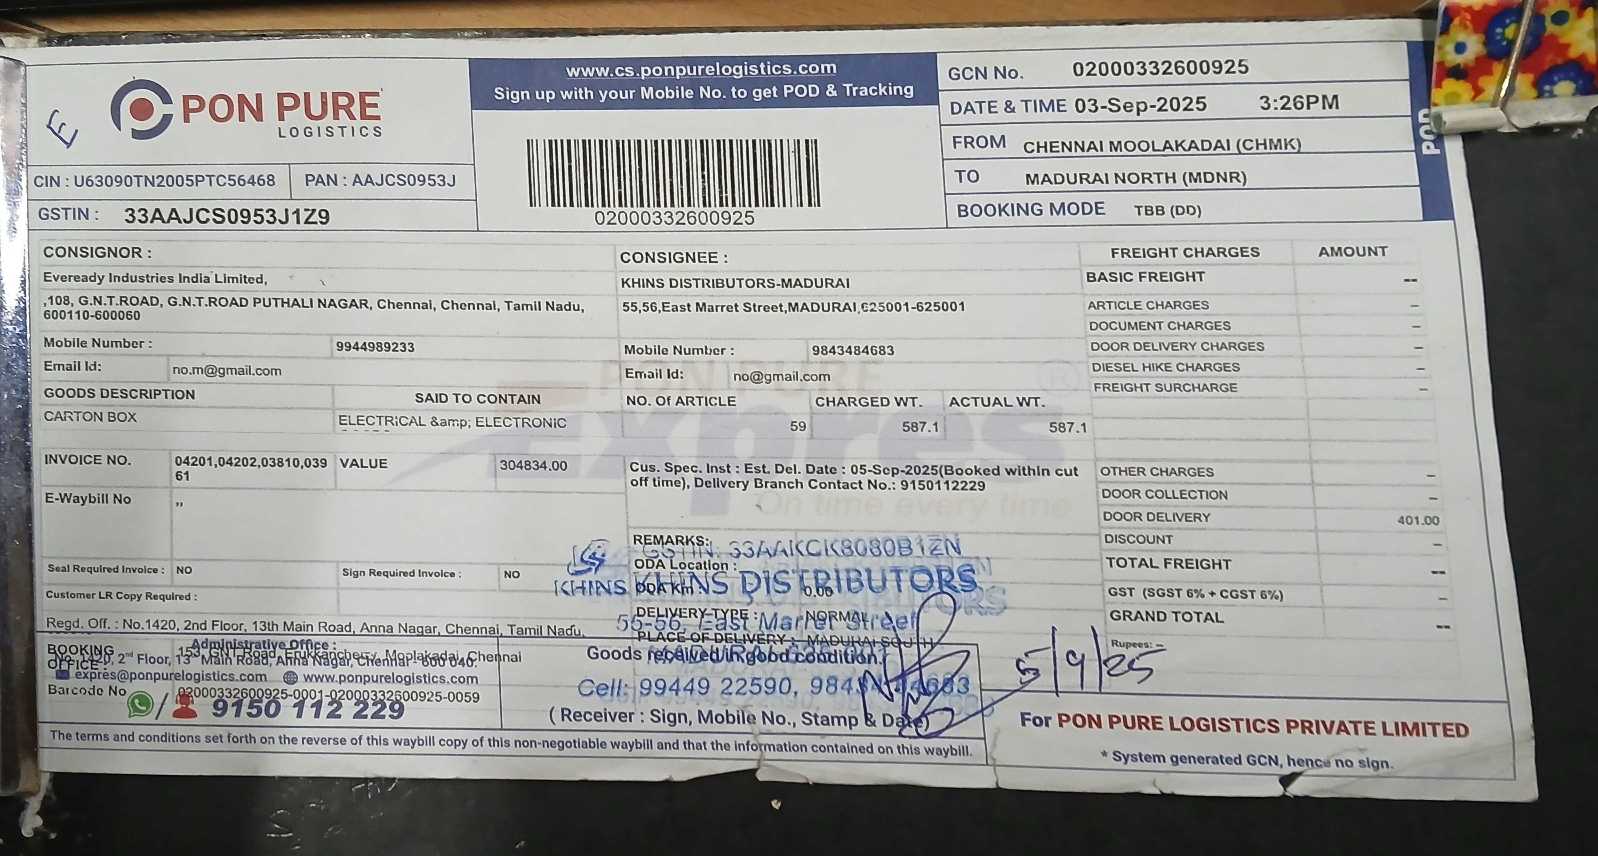 E
PON PURE
LOGISTICS
CIN : U63090TN2005PTC56468
PAN : AAJCS0953J
GSTIN : 33AAJCS0953J1Z9
www.cs.ponpurelogistics.com
Sign up with your Mobile No. to get POD & Tracking
02000332600925
GCN No. 02000332600925
DATE & TIME 03-Sep-2025 3:26PM
FROM CHENNAI MOOLAKADAI (CHMK)
TO MADURAI NORTH (MDNR)
BOOKING MODE TBB (DD)
POD
CONSIGNOR :
Eveready Industries India Limited,
,108, G.N.T.ROAD, G.N.T.ROAD PUTHALI NAGAR, Chennai, Chennai, Tamil Nadu,
600110-600060
Mobile Number : 9944989233
Email Id: no.m@gmail.com
CONSIGNEE :
KHINS DISTRIBUTORS-MADURAI
55,56,East Marret Street,MADURAI,625001-625001
Mobile Number : 9843484683
Email Id: no@gmail.com
GOODS DESCRIPTION SAID TO CONTAIN NO. Of ARTICLE CHARGED WT. ACTUAL WT.
CARTON BOX ELECTRICAL &amp; ELECTRONIC 59 587.1 587.1
INVOICE NO. 04201,04202,03810,039
61
VALUE 304834.00
E-Waybill No ,,
Cus. Spec. Inst : Est. Del. Date : 05-Sep-2025(Booked within cut
off time), Delivery Branch Contact No.: 9150112229
PON PURE
Expres
On time every time
REMARKS:
ODA Location :
0.00
DELIVERY-TYPE : NORMAL
PLACE OF DELIVERY : MADURAI SOUTH
Seal Required Invoice : NO
Sign Required Invoice : NO
Customer LR Copy Required :
Regd. Off. : No.1420, 2nd Floor, 13th Main Road, Anna Nagar, Chennai, Tamil Nadu,
BOOKING
OFFICE :
153, GNT Road, Erukkanchery, Moolakadai, Chennai
Administrative Office :
No.1420, 2nd Floor, 13th Main Road, Anna Nagar, Chennai - 600 040.
expres@ponpurelogistics.com www.ponpurelogistics.com
Barcode No 02000332600925-0001-02000332600925-0059
/ 9150 112 229
The terms and conditions set forth on the reverse of this waybill copy of this non-negotiable waybill and that the information contained on this waybill.
GSTIN: 33AAKCK8080B1ZN
KHINS
KHINS DISTRIBUTORS
55-56, East Market Street
Cell: 99449 22590, 98434 84683
Goods received in good condition.
(Receiver : Sign, Mobile No., Stamp & Date)
5/9/25
FREIGHT CHARGES AMOUNT
BASIC FREIGHT --
ARTICLE CHARGES –
DOCUMENT CHARGES –
DOOR DELIVERY CHARGES –
DIESEL HIKE CHARGES –
FREIGHT SURCHARGE –
OTHER CHARGES –
DOOR COLLECTION –
DOOR DELIVERY 401.00
DISCOUNT –
TOTAL FREIGHT --
GST (SGST 6% + CGST 6%) –
GRAND TOTAL --
Rupees: –
For PON PURE LOGISTICS PRIVATE LIMITED
* System generated GCN, hence no sign.